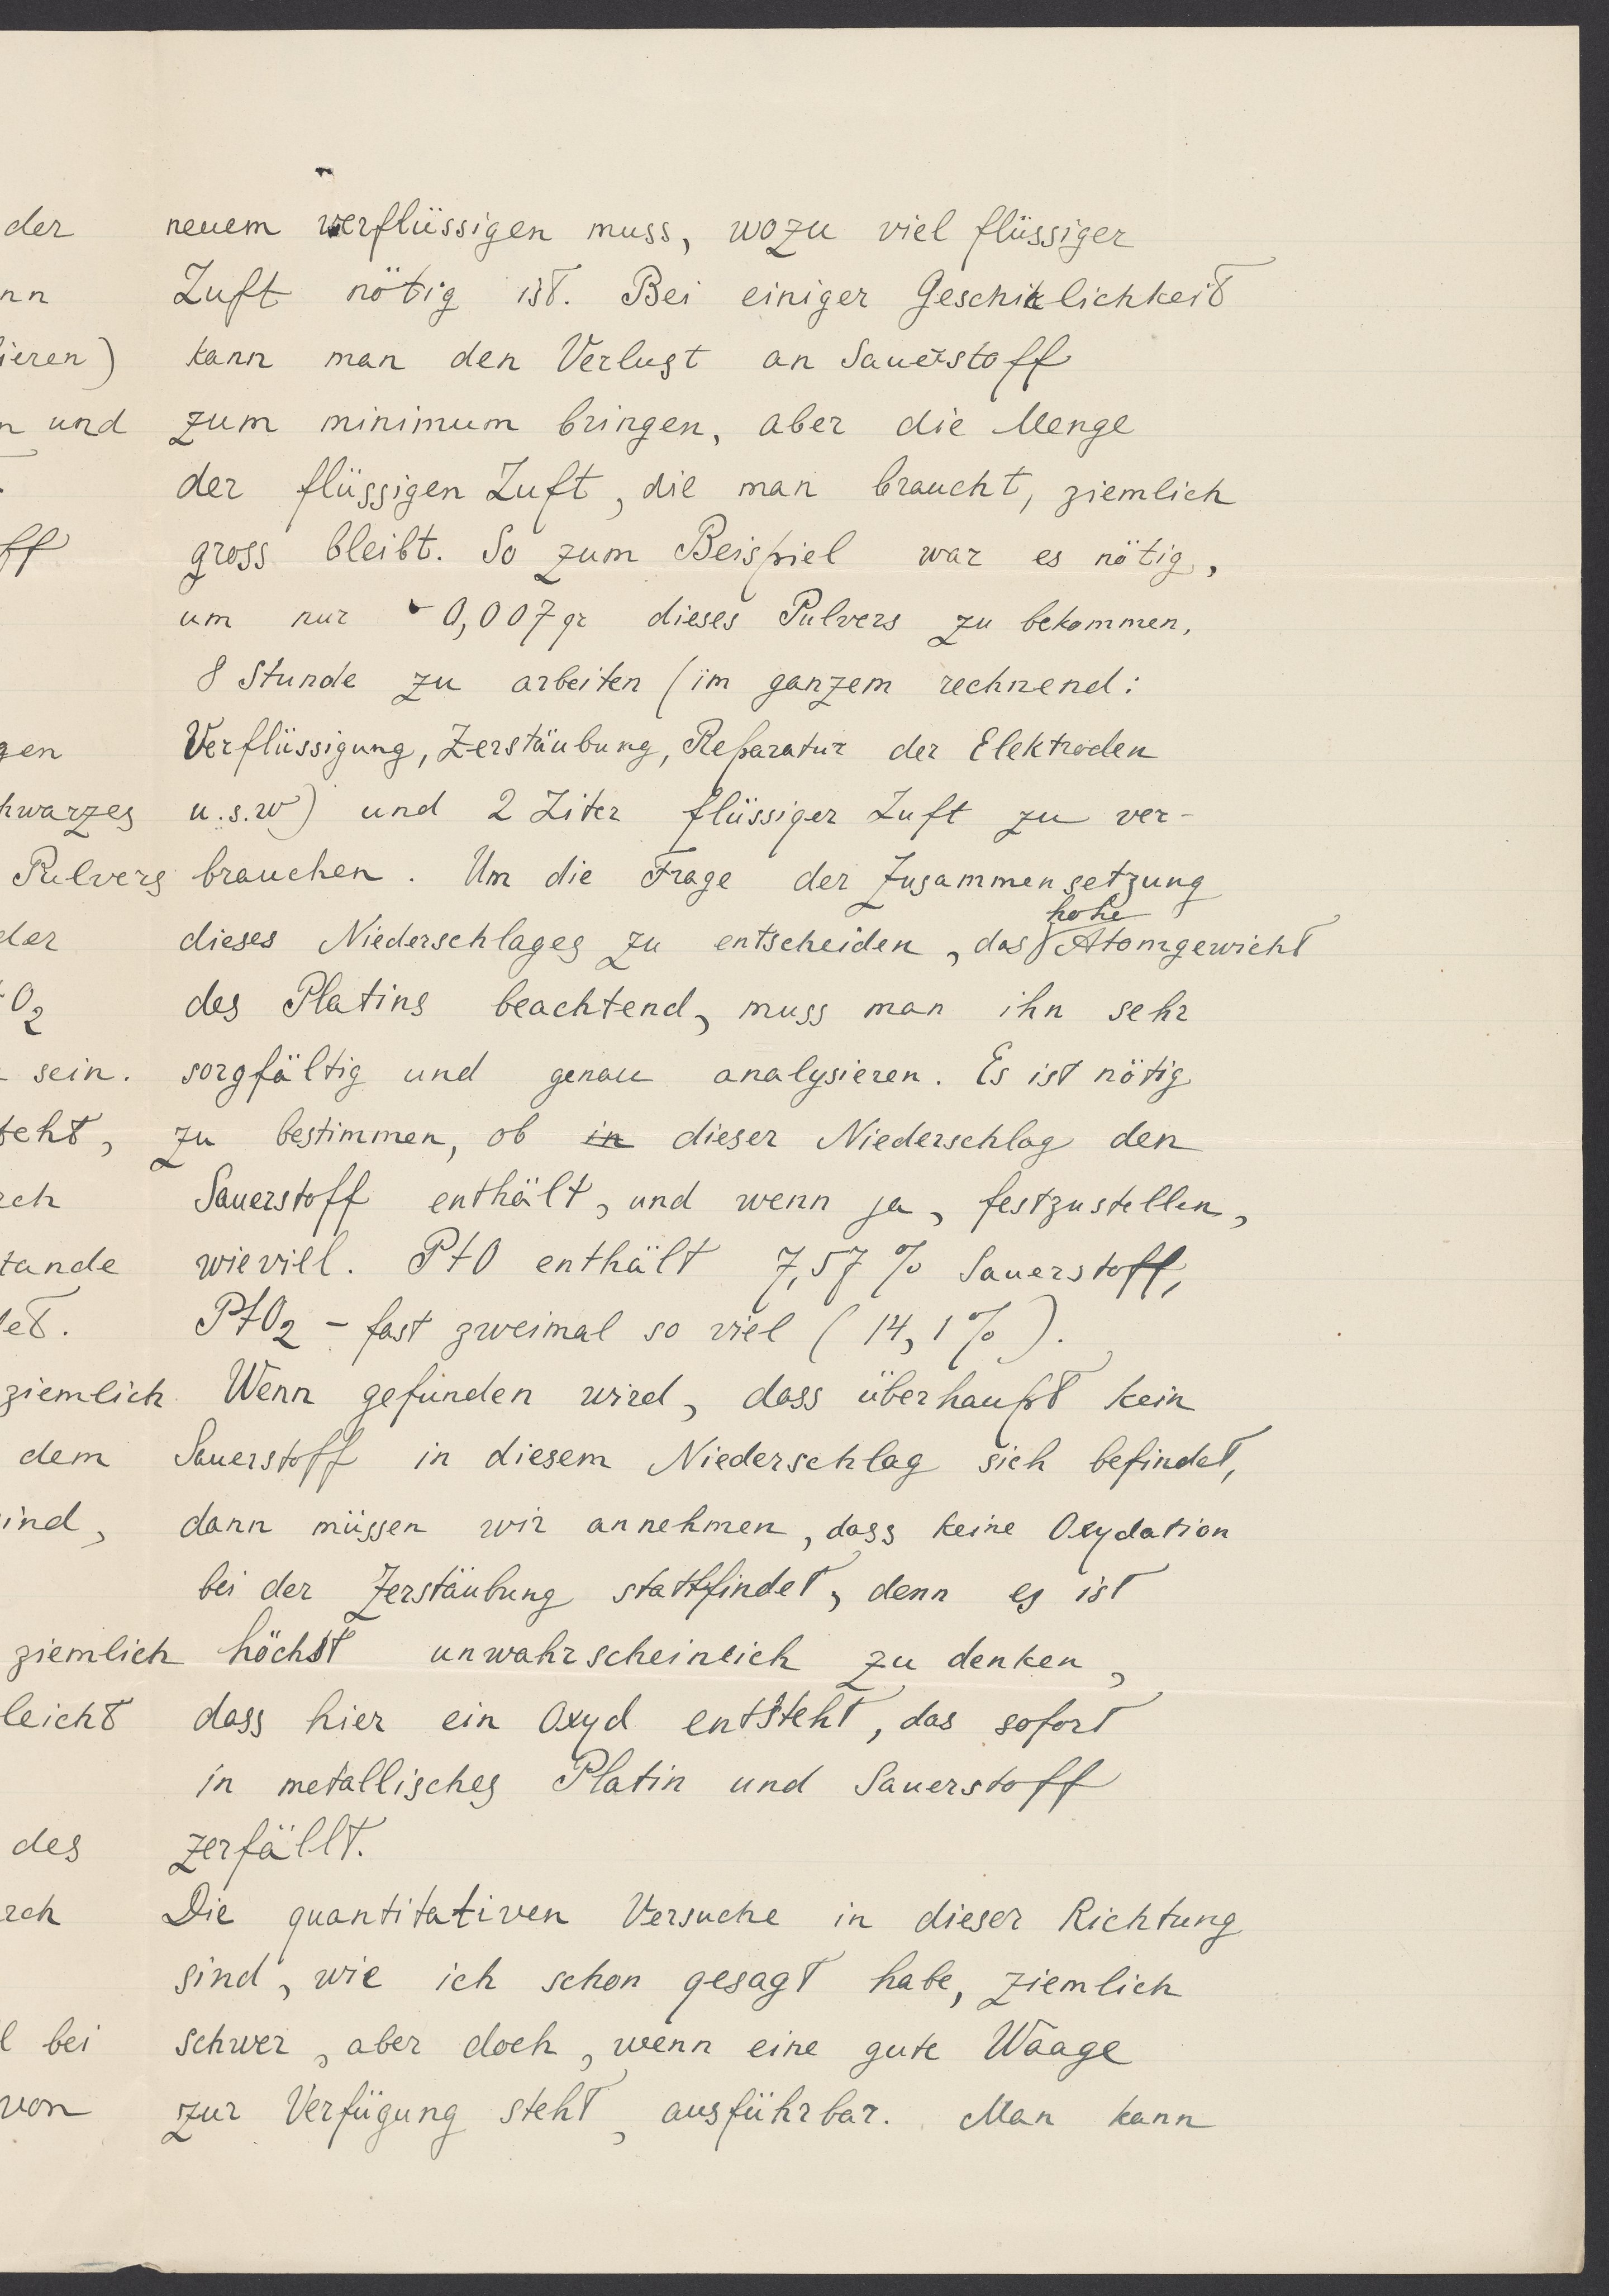 der
nn
ieren)
n und
ff
gen
hwarzes
Pulvers
der
O₂
sein.
teht,
rch
tande
et.
ziemlich
dem
ind,
ziemlich
leicht
des
rch
l bei
von
neuem verflüssigen muss, wozu viel flüssiger
Luft nötig ist. Bei einiger Geschiklichkeit
kann man den Verlust an Sauerstoff
zum minimum bringen, aber die Menge
der flüssigen Luft, die man braucht, ziemlich
gross bleibt. So zum Beispiel war es nötig,
um nur 0,007 gr dieses Pulvers zu bekommen,
8 Stunde zu arbeiten (im ganzem rechnend:
Verflüssigung, Zerstäubung, Reparatur der Elektroden
u.s.w) und 2 Liter flüssiger Luft zu ver-
brauchen. Um die Frage der Zusammensetzung
dieses Niederschlages zu entscheiden, das hohe Atomgewicht
des Platins beachtend, muss man ihn sehr
sorgfältig und genau analysieren. Es ist nötig
zu bestimmen, ob in dieser Niederschlag den
Sauerstoff enthält, und wenn ja, festzustellen,
wieviell. PtO enthält 7,57% Sauerstoff,
PtO₂ – fast zweimal so viel (14,1%).
Wenn gefunden wird, dass überhaupt kein
Sauerstoff in diesem Niederschlag sich befindet,
dann müssen wir annehmen, dass keine Oxydation
bei der Zerstäubung stattfindet, denn es ist
höchst unwahrscheinlich zu denken,
dass hier ein Oxyd entsteht, das sofort
in metallisches Platin und Sauerstoff
zerfällt.
Die quantitativen Versuche in dieser Richtung
sind, wie ich schon gesagt habe, ziemlich
schwer, aber doch, wenn eine gute Waage
zur Verfügung steht, ausführbar. Man kann